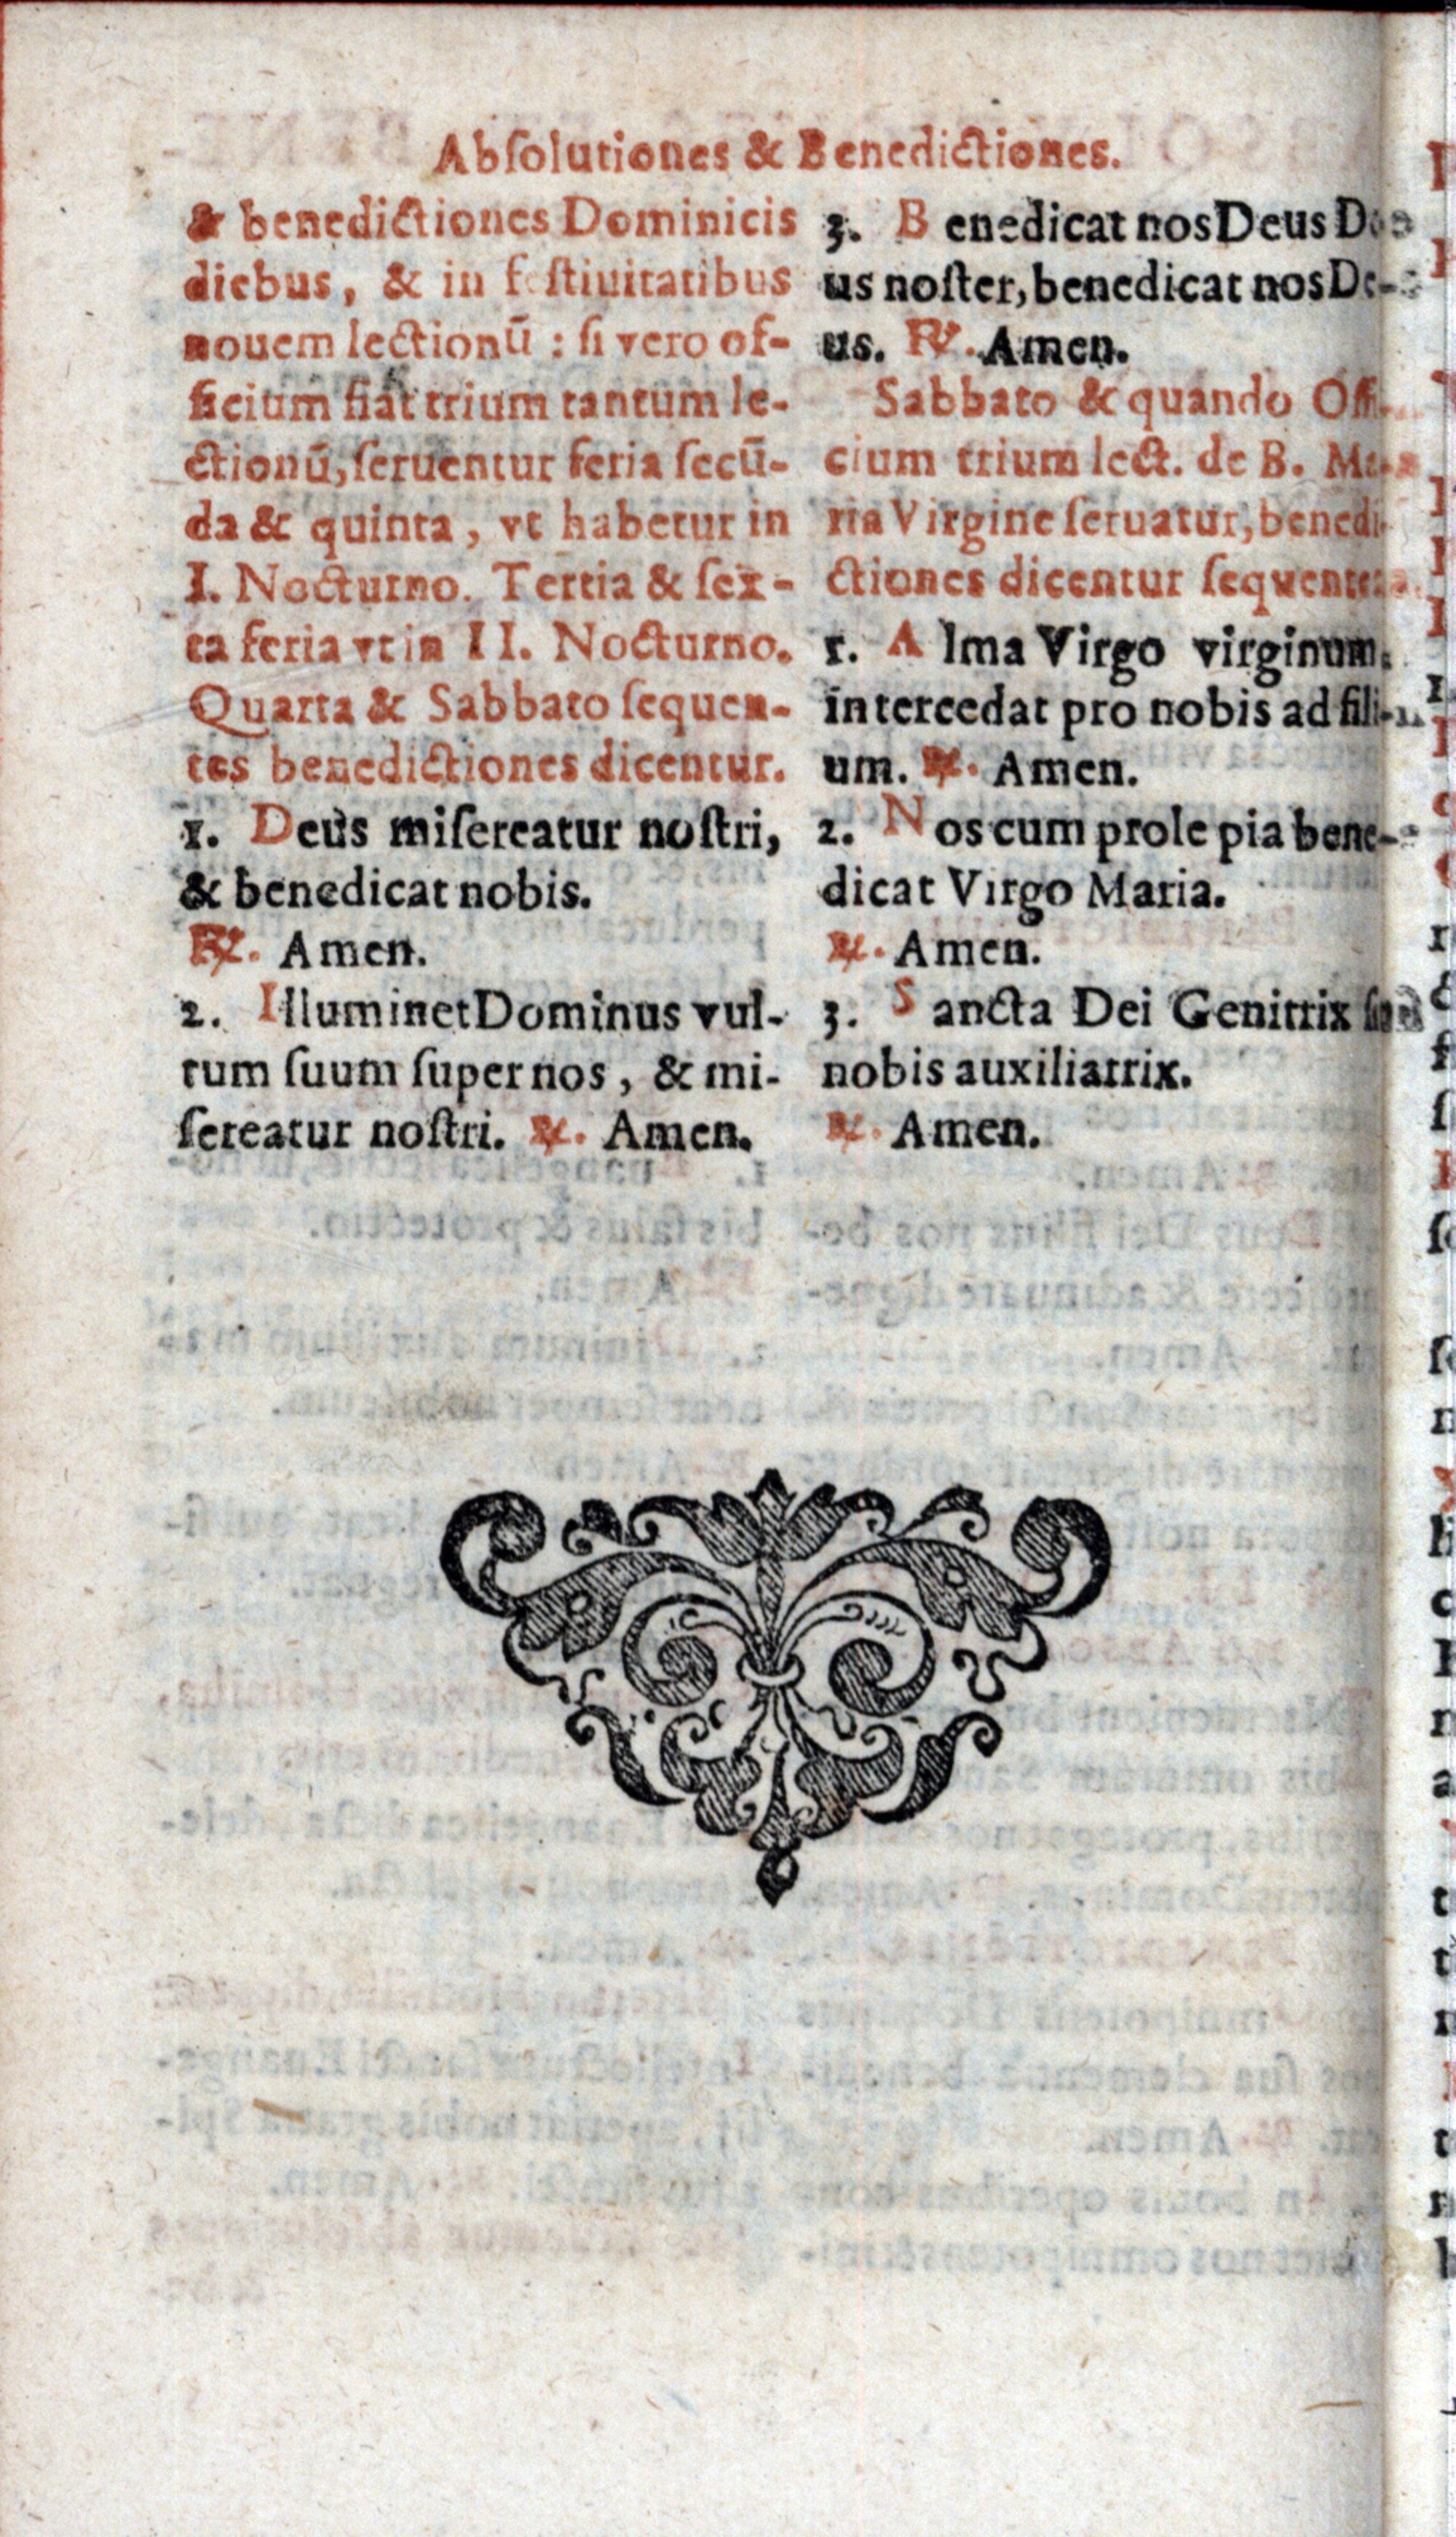 Abſolutiones & Benedictiones.
& benedictiones Dominicis
diebus, & in feſtiuitatibus
nouem lectionū : ſi vero of-
ficium fiat trium tantum le-
ctionū, ſeruentur feria ſecū-
da & quinta, vt habetur in
I. Nocturno. Tertia & ſex-
ta feria vt in II. Nocturno.
Quarta & Sabbato ſequen-
tes benedictiones dicentur.
1. Deus miſereatur noſtri,
& benedicat nobis.
℟. Amen.
2. Illuminet Dominus vul-
tum ſuum ſuper nos, & mi-
ſereatur noſtri. ℟. Amen.
3. Benedicat nos Deus De-
us noſter, benedicat nos De-
us. ℟. Amen.
Sabbato & quando Offi-
cium trium lect. de B. Ma-
ria Virgine ſeruatur, benedi-
ctiones dicentur ſequentes.
1. Alma Virgo virginum
intercedat pro nobis ad fili-
um. ℟. Amen.
2. Nos cum prole pia bene-
dicat Virgo Maria.
℟. Amen.
3. Sancta Dei Genitrix ſit
nobis auxiliatrix.
℟. Amen.